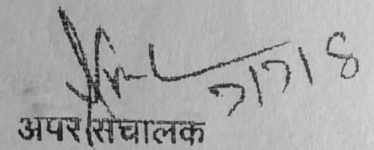 7/7/18
अपर संचालक